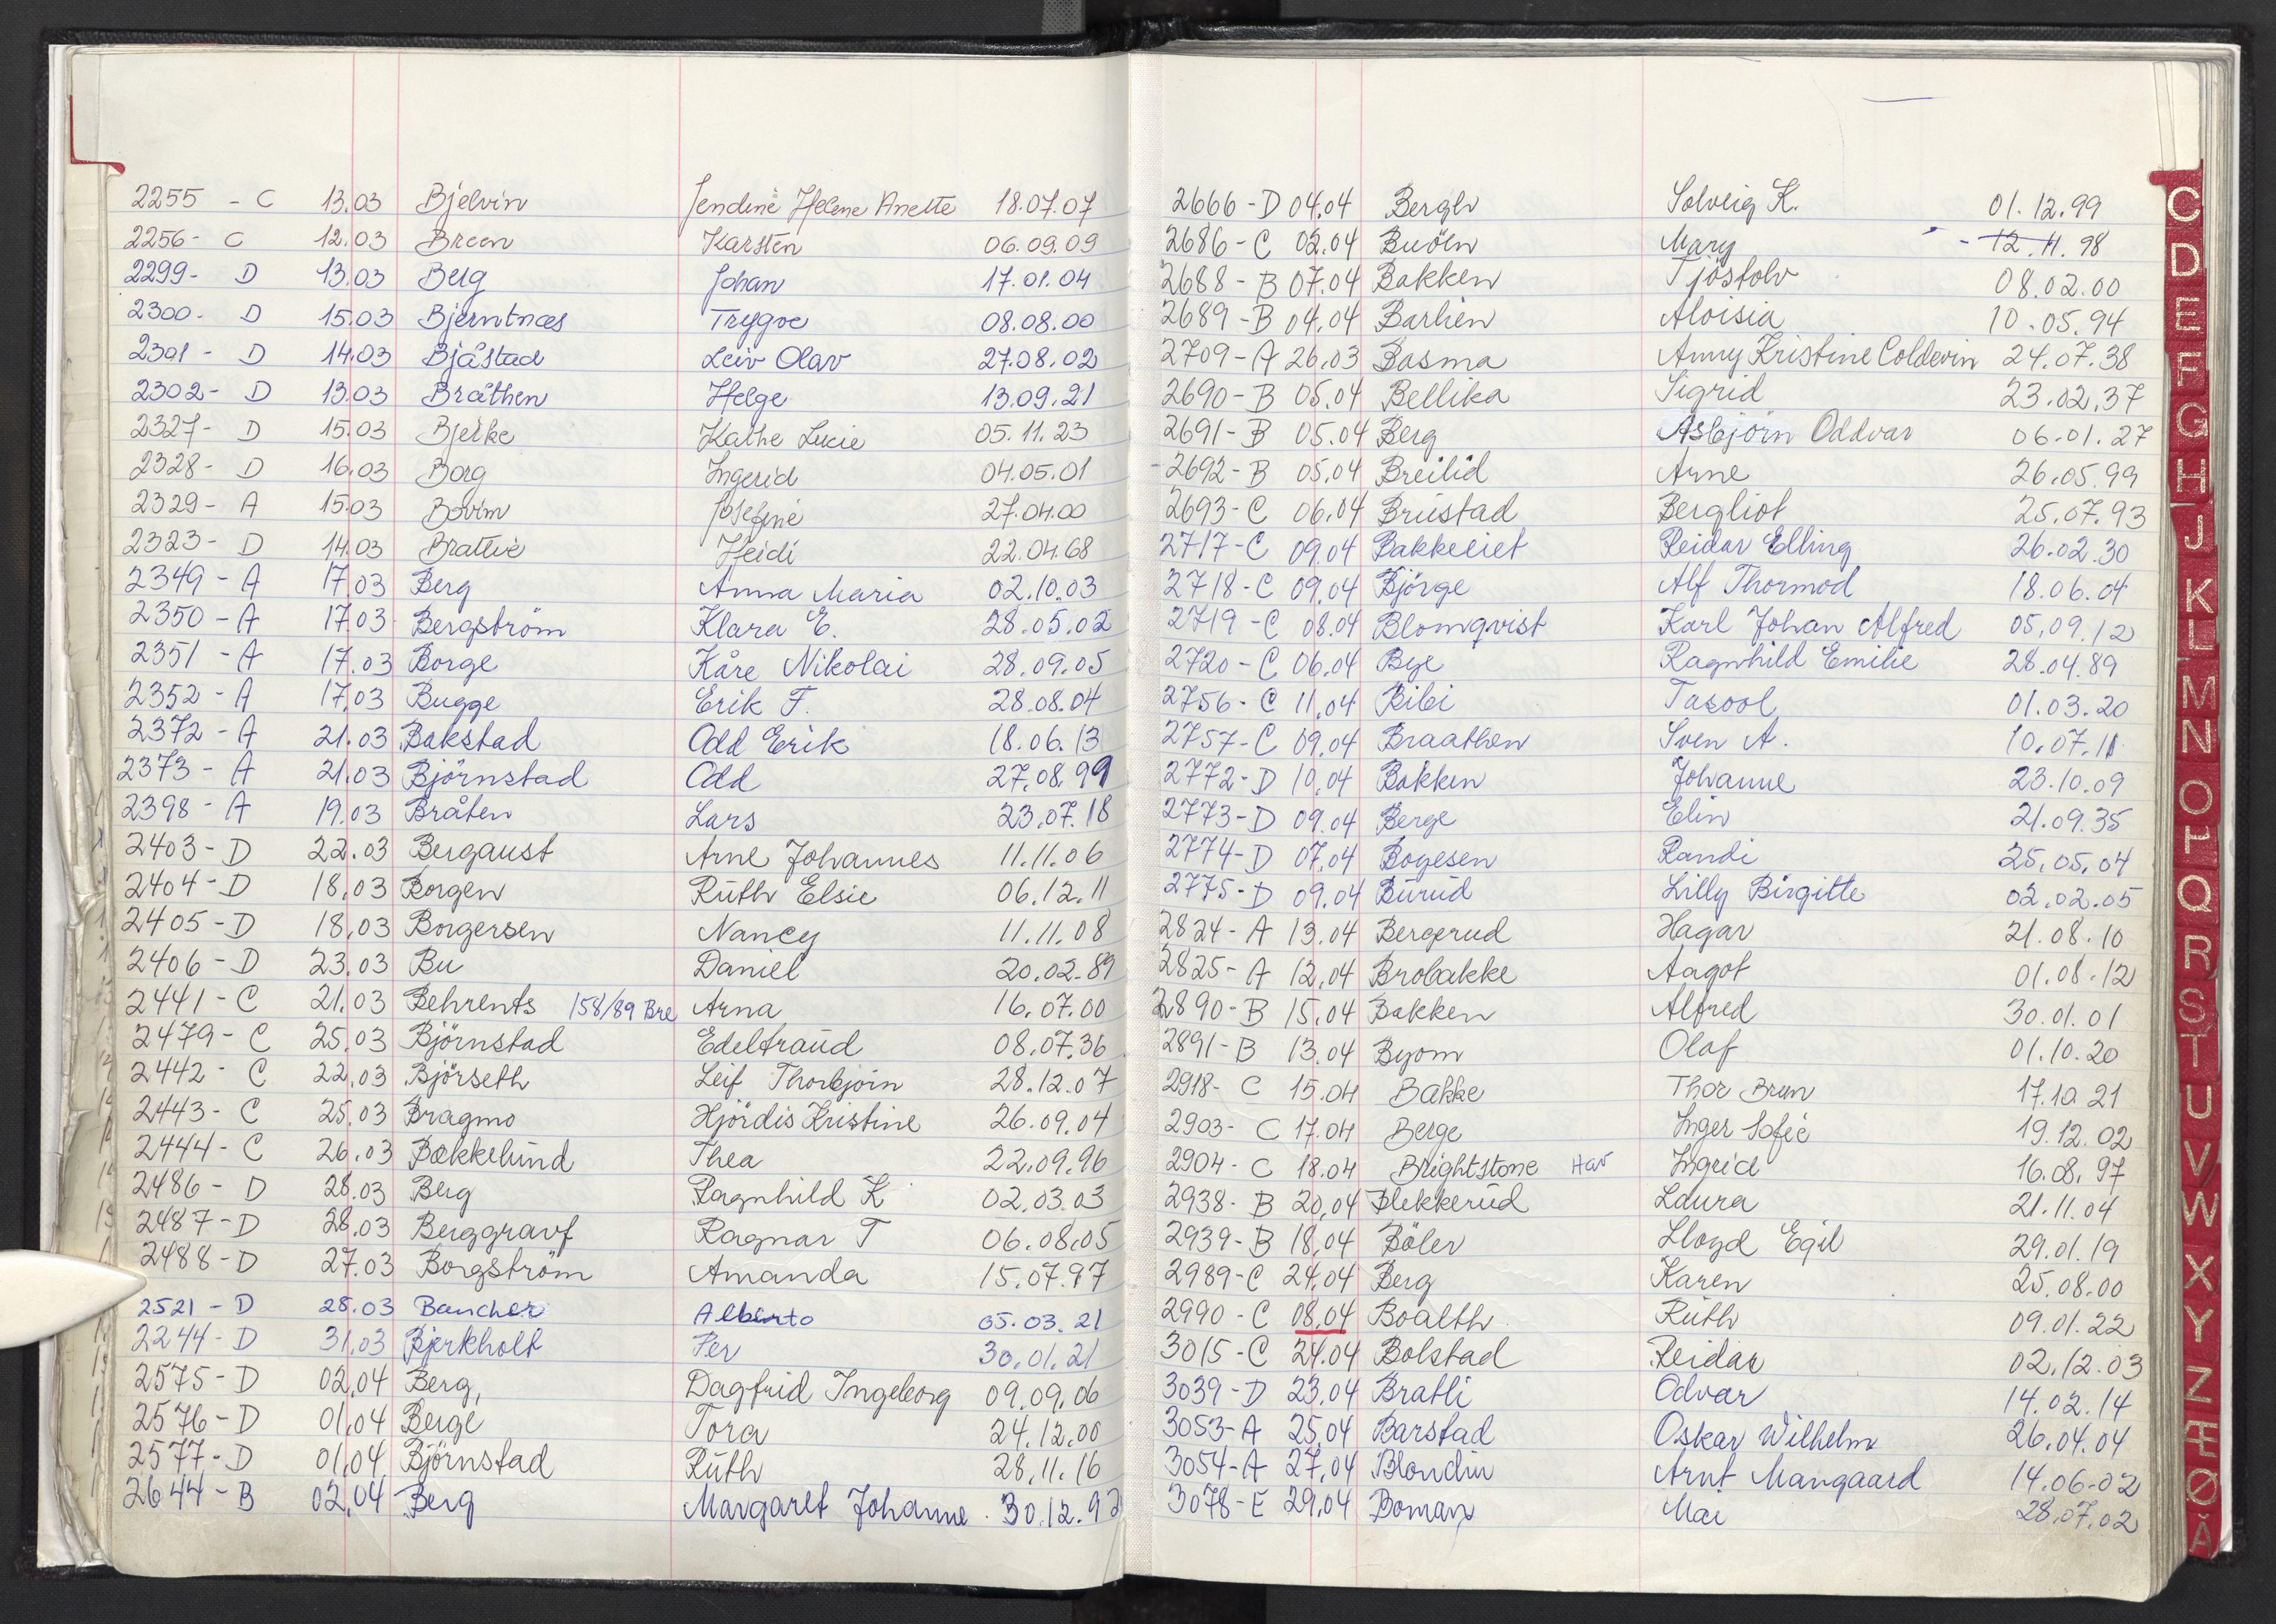 2255 - C 13.03 Bjelvin Jendine Helene Anette 18.07.07
2256- C 12.03 Breen Karsten 06.09.09
2299- D 13.03 Berg Johan 17.01.04
2300- D 15.03 Bjerntnæs Trygve 08.08.00
2301 - D 14.03 Bjåstad Leiv Olav 27.08.02
2302- D 13.03 Bråthen Helge 13.09.21
2327- D 15.03 Bjerke Kathe Lucie 05.11.23
2328- D 16.03 Borg Ingerid 04.05.01
2329- A 15.03 Bovim Josefine 27.04.00
2323- D 14.03 Brattlie Heidi 22.04.68
2349 - A 17.03 Berg Anna Maria 02.10.03
2350 - A 17.03 Bergström Klara E. 28.05.02
2351 - A 17.03 Borge Kåre Nikolai 28.09.05
2352 - A 17.03 Bugge Erik F. 28.08.04
2372 - A 21.03 Bakstad Odd Erik 18.06.13
2373 - A 21.03 Björnstad Odd 27.08.99
2398 - A 19.03 Bråten Lars 23.07.18
2403 - D 22.03 Bergaust Arne Johannes 11.11.06
2404 - D 18.03 Borgen Ruth Elsie 06.12.11
2405 - D 18.03 Borgersen Nancy 11.11.08
2406 - D 23.03 Bu Daniel 20.02.89
2441 - C 21.03 Behrents 158/89 Bre Arna 16.07.00
2479 - C 25.03 Björnstad Edeltraud 08.07.36
2442 - C 22.03 Björseth Leif Thorbjörn 28.12.07
2443 - C 25.03 Bragmo Hjördis Kristine 26.09.04
2444 - C 26.03 Bækkelund Thea 22.09.96
2486 - D 28.03 Berg Ragnhild K 02.03.03
2487 - D 28.03 Berggravf Ragnar T 06.08.05
2488 - D 27.03 Borgström Amanda 15.07.97
2521 - D 28.03 Bancher Alberto 05.03.21
2244 - D 31.03 Bjerkholt Per 30.01.21
2575 - D 02.04 Berg, Dagfrid Ingeborg 09.09.06
2576 - D 01.04 Berge Tora 24.12.00
2577 - D 01.04 Björnstad Ruth 28.11.16
2644 - B 02.04 Berg Margaret Johanne 30.12.92
2666 - D 04.04 Bergh Solveig K. 01.12.99
2686 - C 02.04 Mary 12.11.98
2688 - B 07.04 Bakken Tjöstolv 08.02.00
2689 - B 04.04 Barlien Aloisia 10.05.94
2709 - A 26.03 Bosma Anny Kristine Coldevin 24.07.38
2690 - B 05.04 Bellika Sigrid 23.02.37
2691 - B 05.04 Berg Asbjörn Oddvar 06.01.27
2692 - B 05.04 Breilid Arne 26.05.99
2693 - C 06.04 Brustad Bergliot 25.07.93
2717 - C 09.04 Bakkeeiet Reidar Elling 26.02.30
2718 - C 09.04 Björge Alf Thormod 18.06.04
2719 - C 08.04 Blomqvist Karl Johan Alfred 05.09.12
2720 - C 06.04 Bye Ragnhild Emilie 28.04.89
2756 - C 11.04 Bibi Tasool 01.03.20
2757 - C 09.04 Braathen Sven A. 10.07.11
2772 - D 10.04 Bakken Johanne 23.10.09
2773 - D 09.04 Berge Elin 21.09.35
2774 - D 07.04 Boyesen Randi 25.05.04
2775 - D 09.04 Burud Lilly Birgitte 02.02.05
2824 - A 13.04 Bergerud Hagar 21.08.10
2825 - A 12.04 Brobakke Aagot 01.08.12
2890 - B 15.04 Bakken Alfred 30.01.01
2891 - B 13.04 Byom Olaf 01.10.20
2918 - C 15.04 Bakke Thor Brun 17.10.21
2903 - C 17.04 Berge Inger Sofie 19.12.02
2904 - C 18.04 Brightstone Hav Ingrid 16.08.97
2938 - B 20.04 Blekkerud Laura 21.11.04
2939 - B 18.04 Böler Lloyd Egil 29.01.19
2989 - C 24.04 Berg Karen 25.08.00
2990 - C 08.04 Boalth Ruth 09.01.22
3015 - C 24.04 Bolstad Reidar 02.12.03
3039 - D 23.04 Bratli Odvar 14.02.14
3053 - A 25.04 Barstad Oskar Wilhelm 26.04.04
3054 - A 27.04 Blondin Arnt Mangaard 14.06-02
3078 - E 29.04 Boman Mai 28.07.02
C
D
E
F
G
H
J
K
L
M
N
O
P
Q
R
S
T
U
V
W
X
Y
Z
Æ
Ø
Å